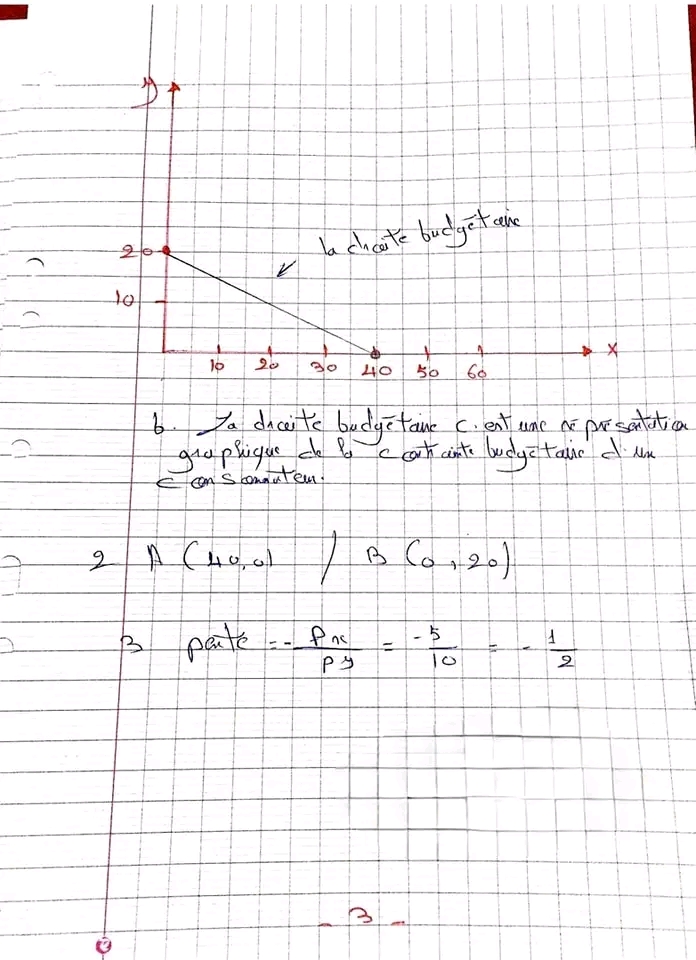 y
20
la droite budgétaire
10
10 20 30 40 50 60 x
b. La droite budgétaire c'est une réprésentation
graphique de la contrainte budgétaire d'un
consomateur.
2 A (40,0) / B (0,20)
3 pente = - Px/Py = -5/10 = - 1/2
- 3 -